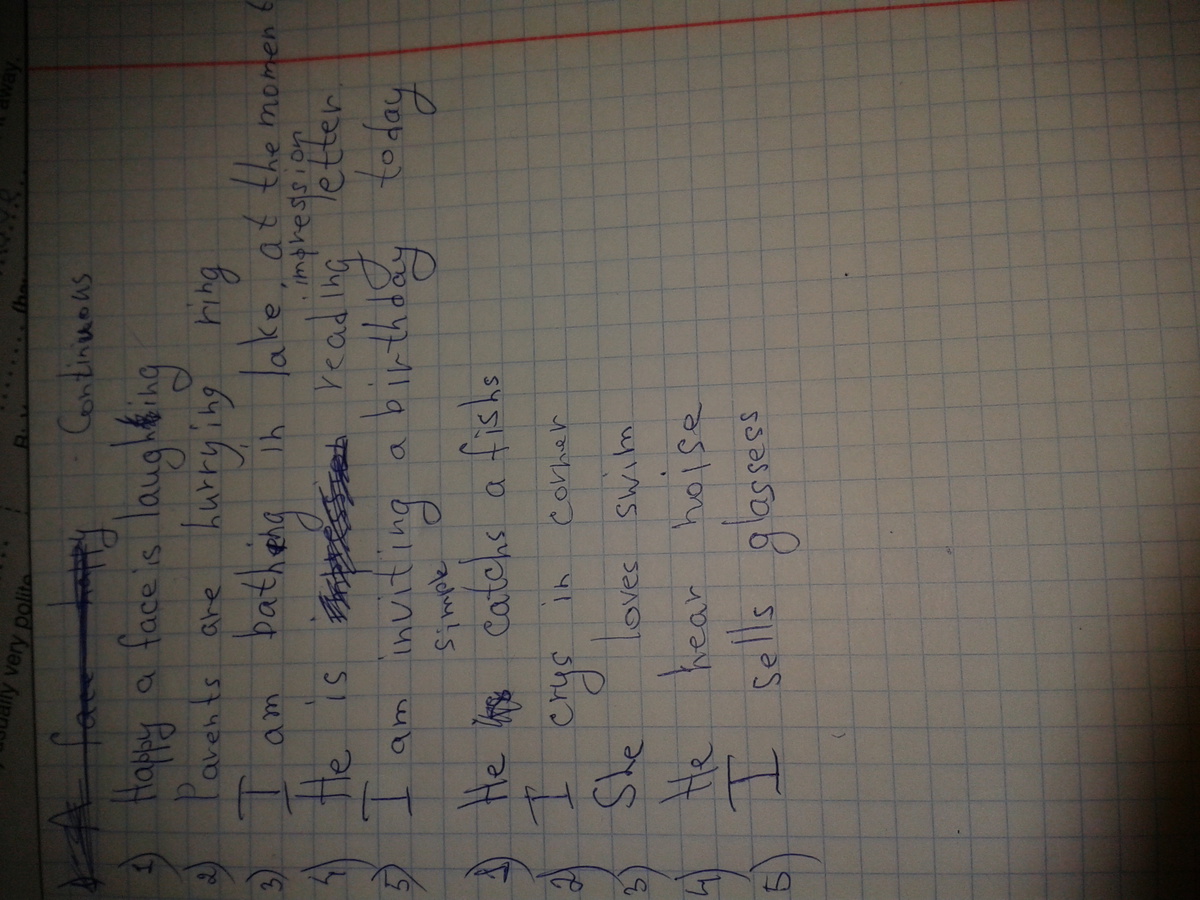 Continuous
1) Happy a face is laughing
2) Parents are hurrying ring
3) I am bathing in lake, at the moment
impression
4) He is reading letter.
5) I am inviting a birthday today
simple
1) He catchs a fishs
2) I crys in corner
3) She loves swim
4) He hear noise
5) I sells glassess
usually very polite